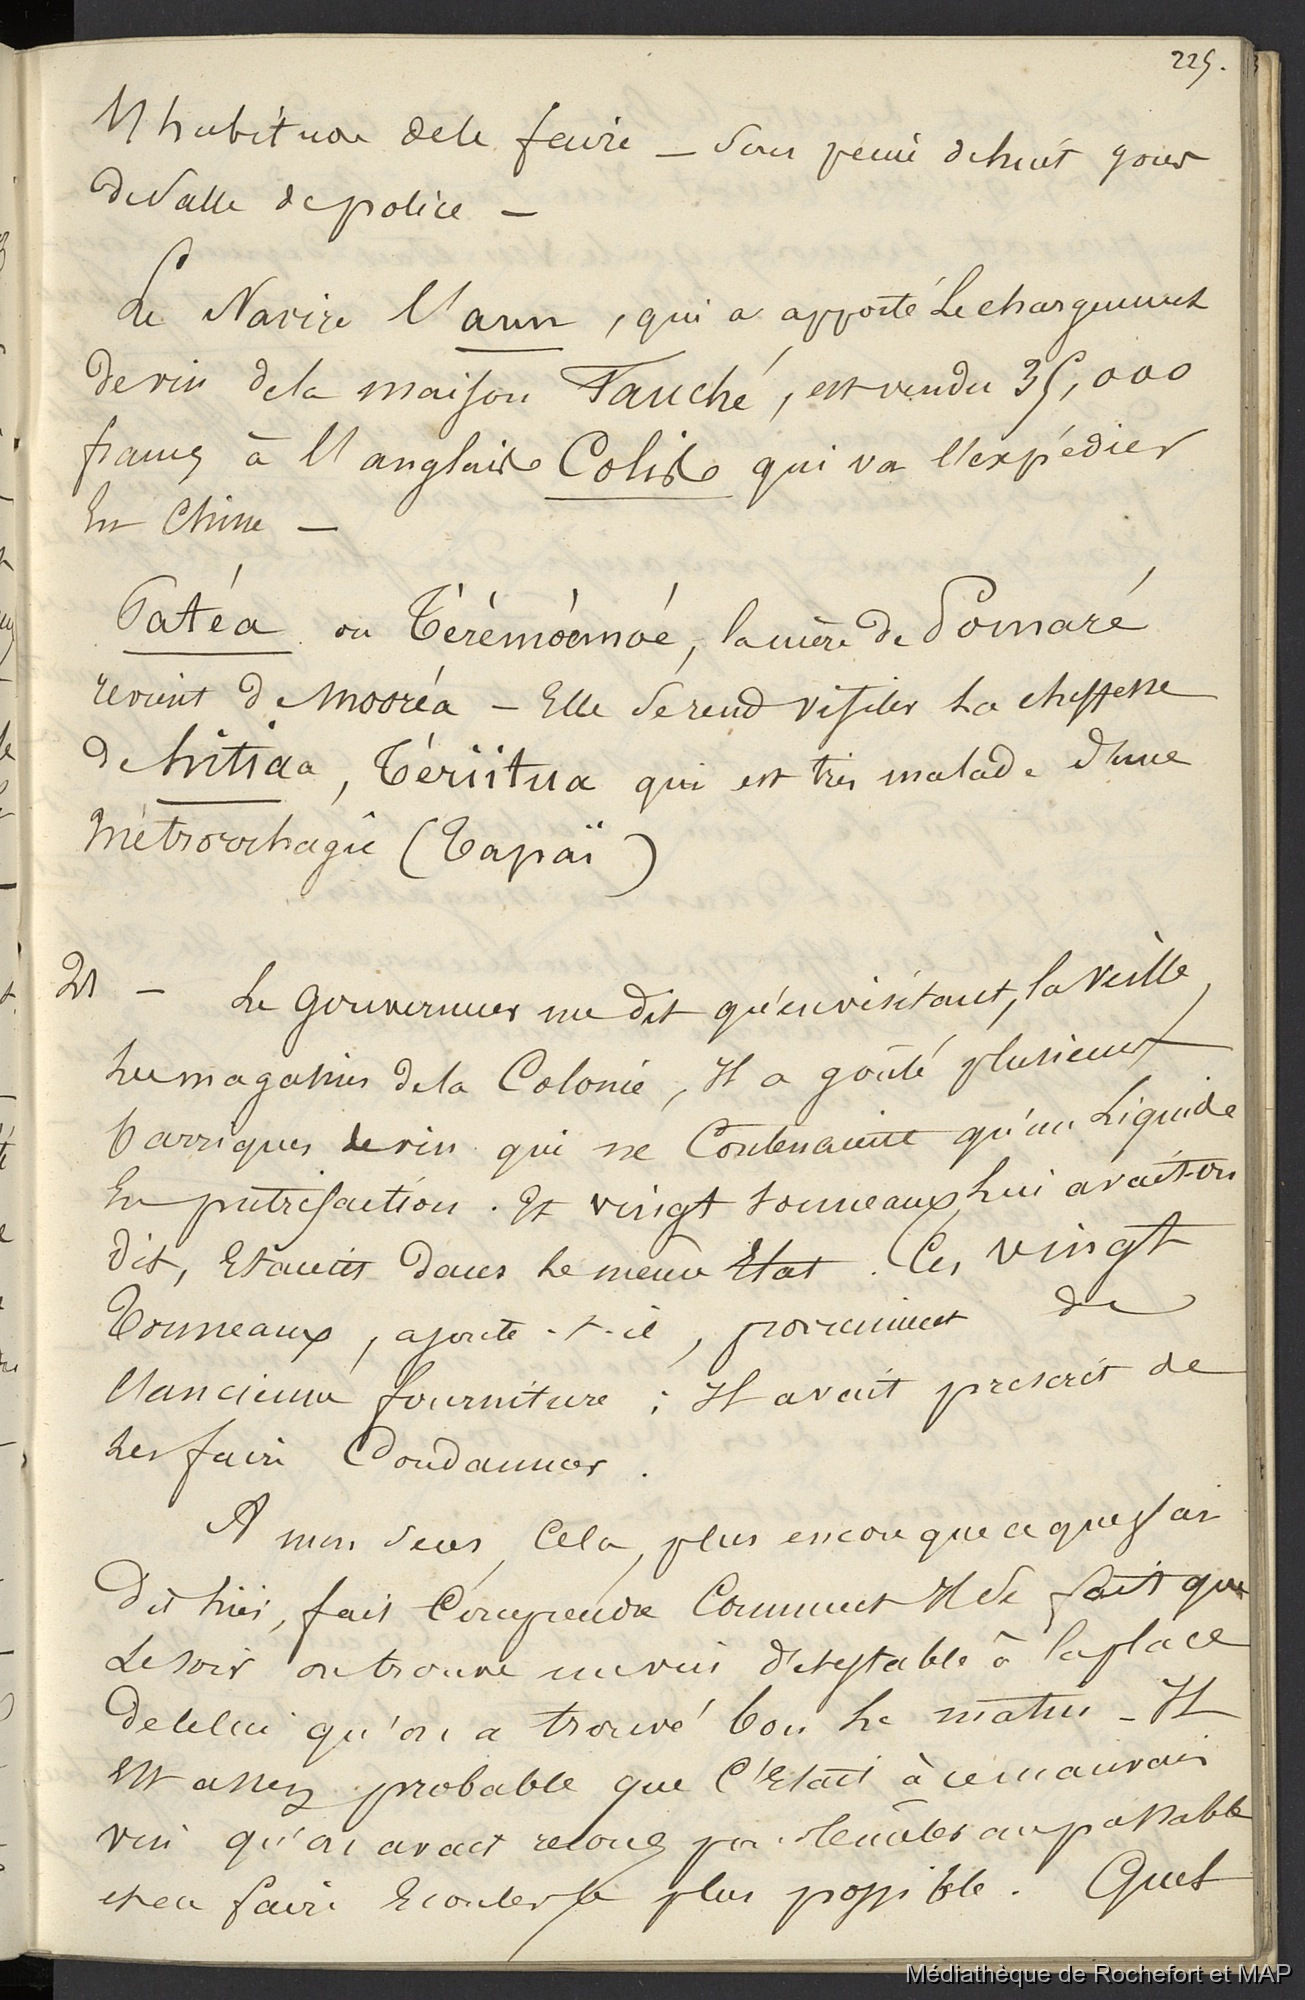 225.
l'habitude de le faire — Sous peine de huit jours
de Salle de police —
Le Navire l'ann, qui a apporté Le chargement
de vin de la maison Fauché, est vendu 35,000
francs à l'anglais Colis qui va l'expédier
En Chine —
Patéa ou Térémòémoé, la mère de Pomaré
revient de Mooréa — Elle Se rend visiter La cheffesse
de hitiaa, Tériitua qui est très malade d'une
Métrorrhagie (Tapaï)
21 — Le Gouverneur me dit qu'en visitant, la veille,
Les magasins de la Colonie, Il a goûté plusieurs
barriques de vin qui ne Contenaient qu'un Liquide
En putréfaction. Et vingt tonneaux, Lui avait-on
dit, Etaient dans Le même Etat. Ces vingt
Tonneaux, ajoute-t-il, provenaient de
l'ancienne fourniture ; Il avait prescrit de
Les faire Condamner.
A mon Sens, Cela, plus encore que ce que j'ai
dit hier, fait Comprendre Comment Il Se fait que
Le soir on trouve un vin détestable à la place
de celui qu'on a trouvé bon Le matin — Il
Est assez probable que C'Etait à ce mauvais
vin qu'on avait recours pour le mêler au passable
et en faire Ecouler le plus possible. Quel
Médiathèque de Rochefort et MAP